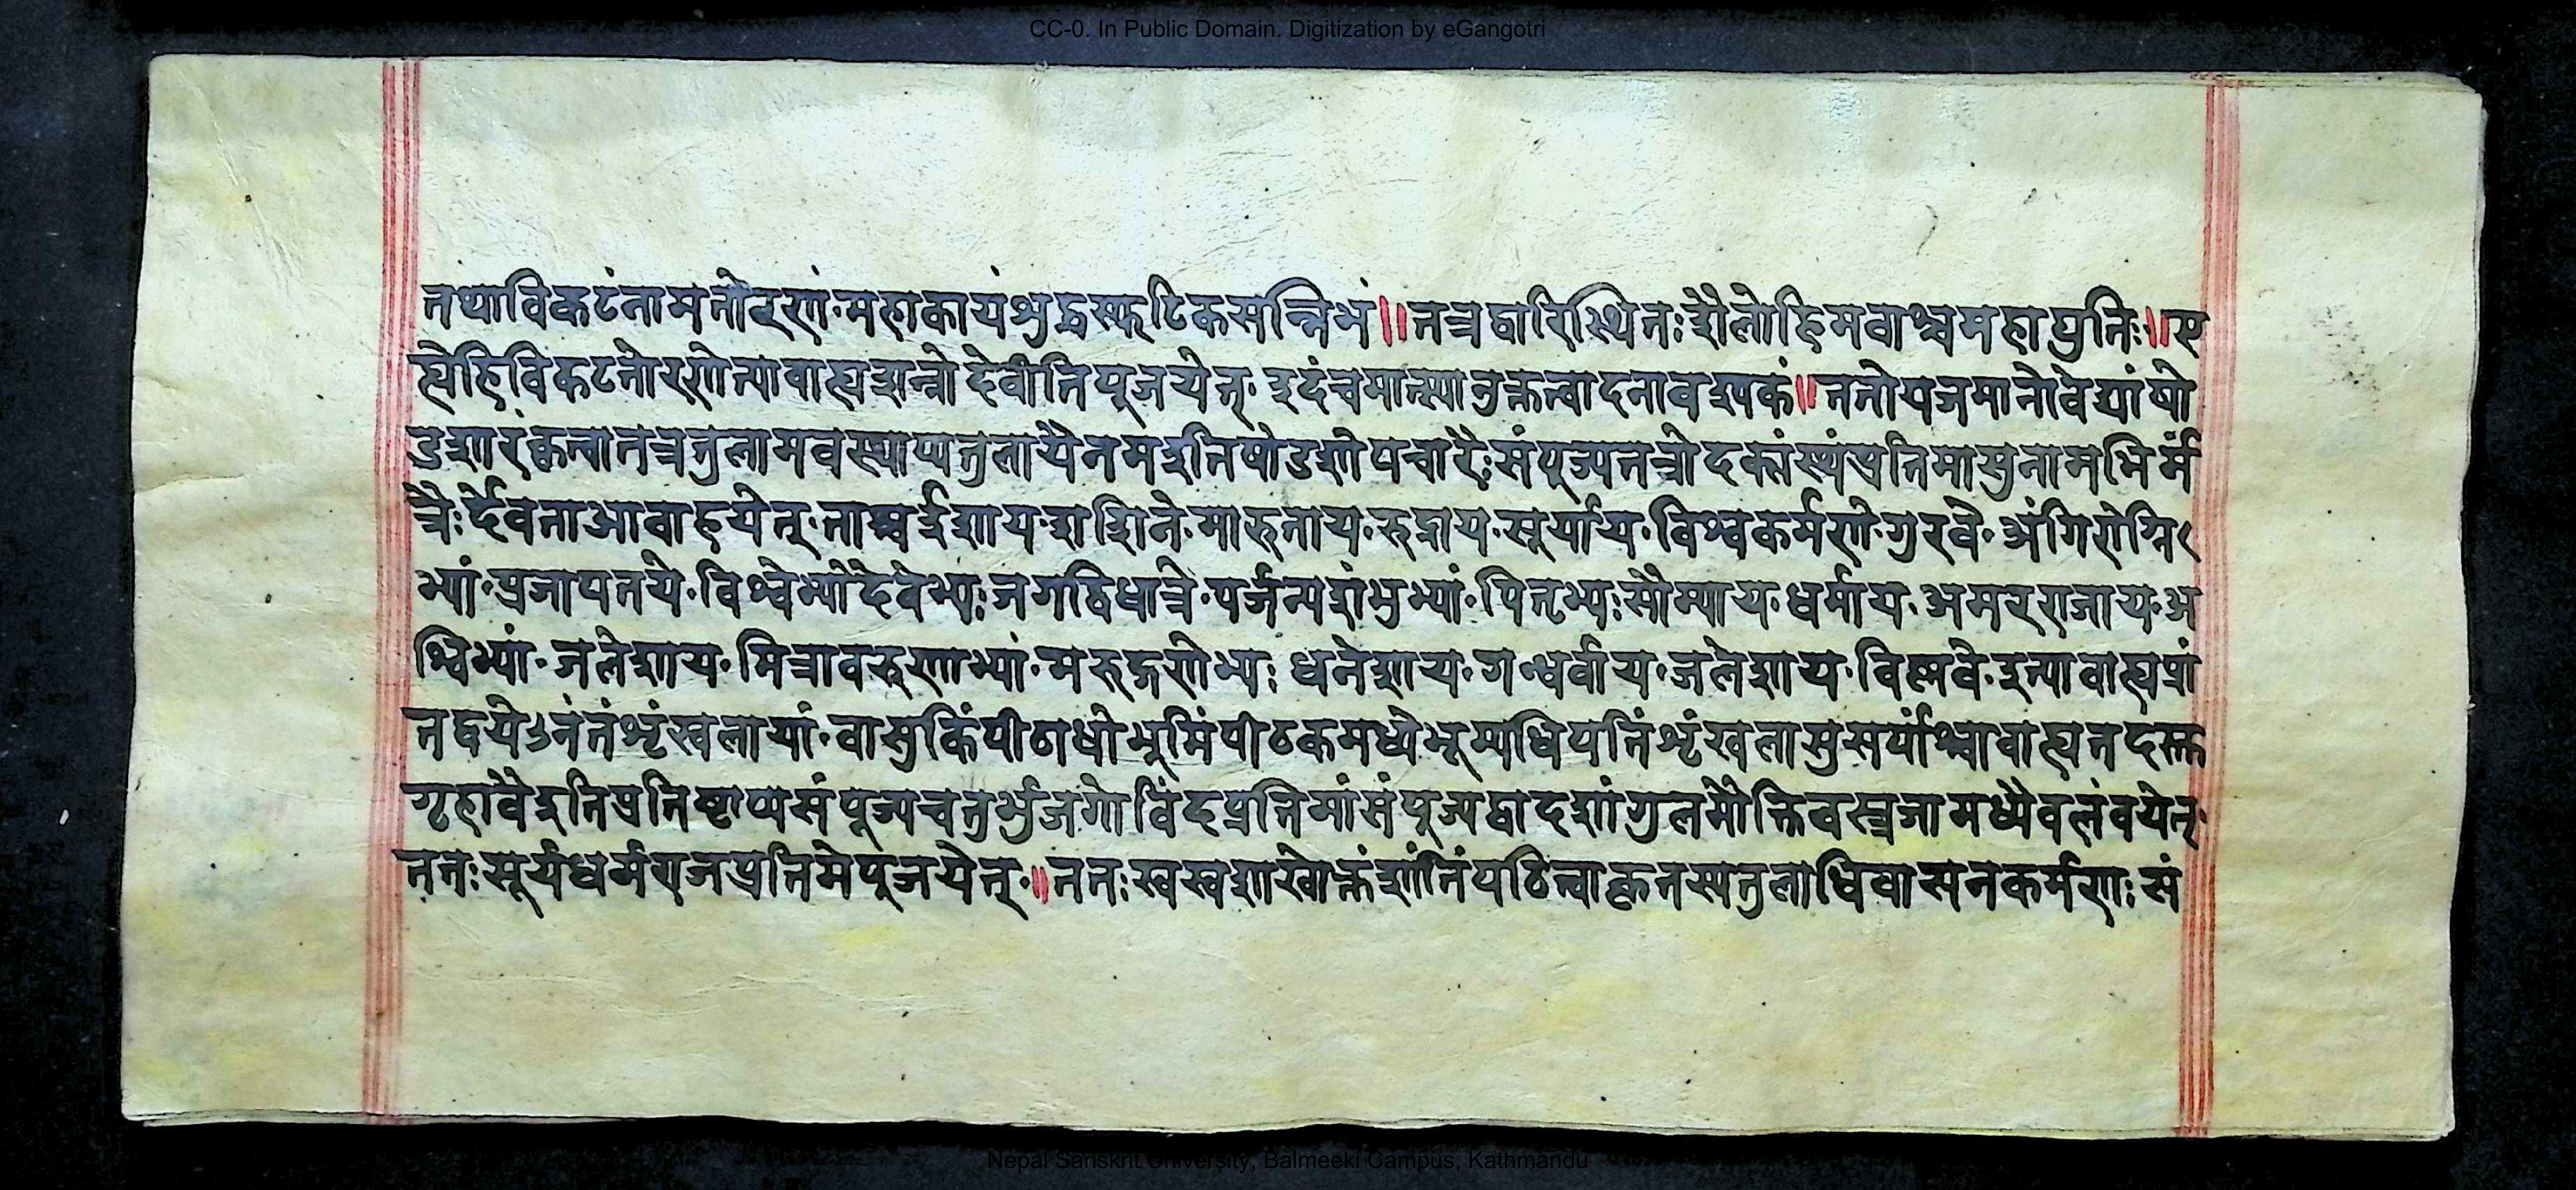 CC-0. In Public Domain. Digitization by eGangotri
तथाविकटंनामतोरणं॰महाकायंशुद्धस्फटिकसन्निभं॥तत्रद्वारिस्थितःशैलोहिमवांश्चमहाद्युतिः॥ए
ह्येहिविकटतोरणेत्यावाह्यशन्नोदेवीतिपूजयेत्॰इदंचमात्स्यानुक्तत्वादनावश्यकं॥ततोयजमानोवेद्यांषो
डशारंकृत्वातत्रतुलामवस्थाप्यतुलायैनमइतिषोडशोपचारैःसंपूज्यतत्रोदकांस्यंप्रतिमासुनामभिर्म
त्रैःर्देवताआवाहयेत्॰ताश्चईशाय॰शशिने॰मारुताय॰रुद्राय॰सूर्याय॰विश्वकर्मणे॰गुरवे॰अंगिरोग्नि
भ्यां॰प्रजापतये॰विश्वेभ्योदेवेभ्यःजगद्विधात्रे॰पर्जन्यशंभुभ्यां॰पितृभ्यःसौम्याय॰धर्माय॰अमरराजाय॰अ
श्विभ्यां॰जलेशाय॰मित्रावरुणाभ्यां॰मरुद्गणेभ्यःधनेशाय॰गन्धर्वाय॰जलेशाय॰विष्णवे॰इत्यावाह्यप्रां
तद्वयेऽनंतंशृंखलायां॰वासुकिंपीठाधोभूमिंपीठकमध्येभूम्यधिपतिंशृंखलासुसर्पांश्चावाह्यतदस्त
गृहावैइतिप्रतिष्ठाप्यसंपूज्यचतुर्भुजगोविंदप्रतिमांसंपूज्यद्वादशांगुलमौक्तिकस्रजामध्येवलंवयेत्॰
ततःसूर्यधर्मराजप्रतिमेपूजयेत्॰॥ततःस्वस्वशाखोक्तंशांतिंपठित्वाकृतस्यतुलाधिवासनकर्मणःसं
Nepal Sanskrit University, Balmeeki Campus, Kathmandu